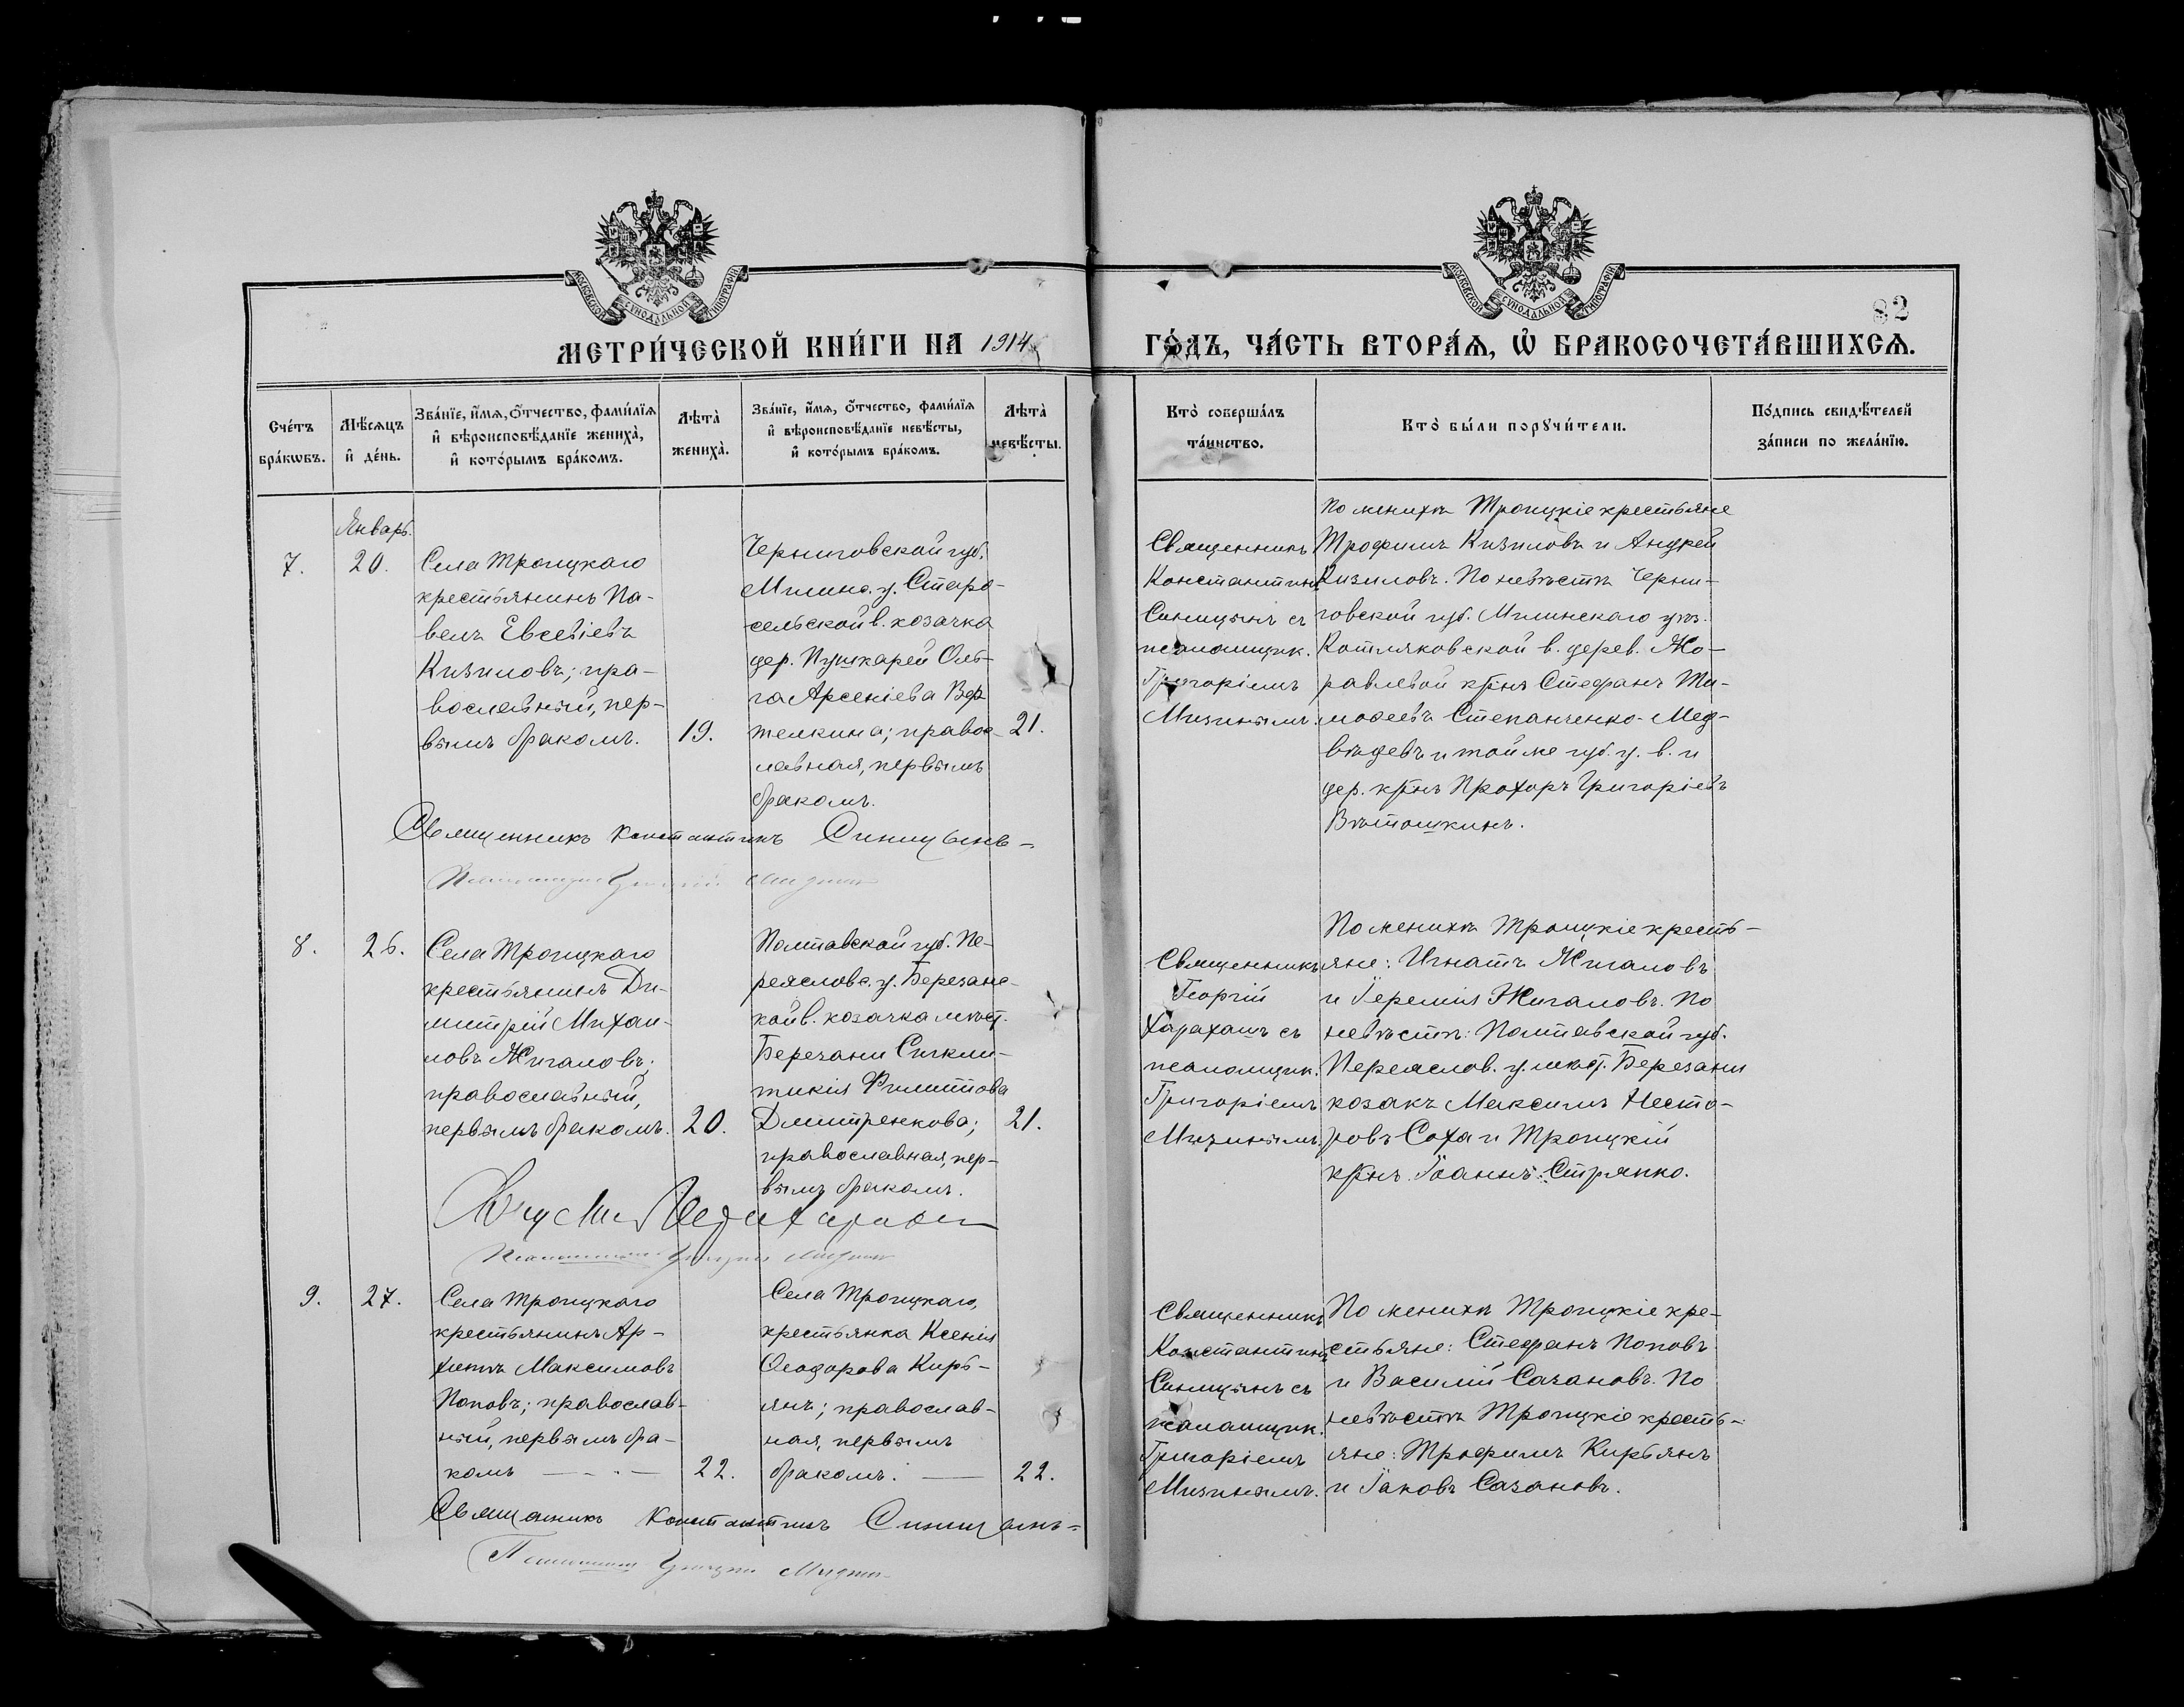 МОСКОВСКОЙ СѴНОДАЛЬНОЙ ТИПОГРАФІИ
МОСКОВСКОЙ СѴНОДАЛЬНОЙ ТИПОГРАФІИ
82
МЕТРИ́ЧЕСКОЙ КНИ́ГИ НА 1914
ГО́ДЪ, ЧА́СТЬ ВТОРА́Ѧ, Ѽ БРАКОСОЧЕТА́ВШИХСѦ.
Сче́тъ бра́кѡвъ.
Мѣ́сяцъ и҆ де́нь.
Зва́нїе, и҆́мѧ, ѻ҆́тчество, фами́лїѧ
и҆ вѣроисповѣ́данїе жениха̀,
и҆ кото́рымъ бра́комъ.
Лѣта̀ жениха̀.
Зва́нїе, и҆́мѧ, ѻ҆́тчество, фами́лїѧ
и҆ вѣроисповѣ́данїе невѣ́сты,
и҆ кото́рымъ бра́комъ.
Лѣта̀ невѣ́сты.
Кто̀ соверша́лъ
та́инство.
Кто̀ бы́ли порꙋчи́тели.
По́дпись свидѣ́телей
за́писи по жела́нїю.
Январь.
7.
20.
Села Троицкаго
крестьянинъ Па-
велъ Евсевіевъ
Кизиловъ; пра-
вославный, пер-
вымъ бракомъ.
19.
Черниговской губ.
Мглинс. у. Старо-
сельской в. козачка
дер. Пушкарей Оль-
га Арсеніева Вер-
телкина; правос-
лавная, первымъ
бракомъ.
21.
Священникъ
Константинъ
Синицынъ съ
псаломщик.
Григоріемъ
Мизинымъ.
По женихѣ Троицкіе крестьяне
Трофимъ Кизиловъ и Андрей
Кизиловъ. По невѣстѣ Черни-
говской губ. Мглинскаго уѣз.
Котляковской в. дерев. Жо-
равлевой крнъ Стефанъ Ти-
моѳеевъ Степанченко-Мед-
вѣдевъ и той же губ. у. в. и
дер. крнъ Прохоръ Григоріевъ
Вѣтошкинъ.
Священникъ Константинъ Синицынъ
Псаломщикъ Григорій Мизинъ
8.
26.
Села Троицкаго
крестьянинъ Ди-
митрій Михаи-
ловъ Жигаловъ;
православный,
первымъ бракомъ.
20.
Полтавской губ. Пе-
реяславс. у. Березанс-
кой в. козачка мѣст.
Березани Сигкли-
тикія Филиппова
Дмитренкова;
православная, пер-
вымъ бракомъ.
21.
Священникъ
Георгій
Харахашъ съ
псаломщик.
Григоріемъ
Мизинымъ.
По женихѣ Троицкіе кресть-
яне: Игнатъ Жигаловъ
и Іеремія Жигаловъ. По
невѣстѣ: Полтавской губ.
Переяслов. у. мѣст. Березани
козакъ Максимъ Несто-
ровъ Соха и Троицкій
крнъ Іоаннъ Стряпко.
Псаломщикъ Григорій Мизинъ
9.
27.
Села Троицкаго
крестьянинъ Ар-
хиппъ Максимовъ
Поповъ; православ-
ный, первымъ бра-
комъ
22.
Села Троицкаго,
крестьянка Ксенія
Ѳеодорова Кирь-
янъ; православ-
ная, первымъ
бракомъ.
22.
Священникъ
Константинъ
Синицынъ съ
псаломщик.
Григоріемъ
Мизинымъ.
По женихѣ Троицкіе кре-
стьяне: Стефанъ Поповъ
и Василій Сачановъ. По
невѣстѣ Троицкіе кресть-
яне: Трофимъ Кирьянъ
и Іаковъ Сачановъ.
Священникъ Константинъ Синицынъ
Псаломщикъ Григорій Мизинъ